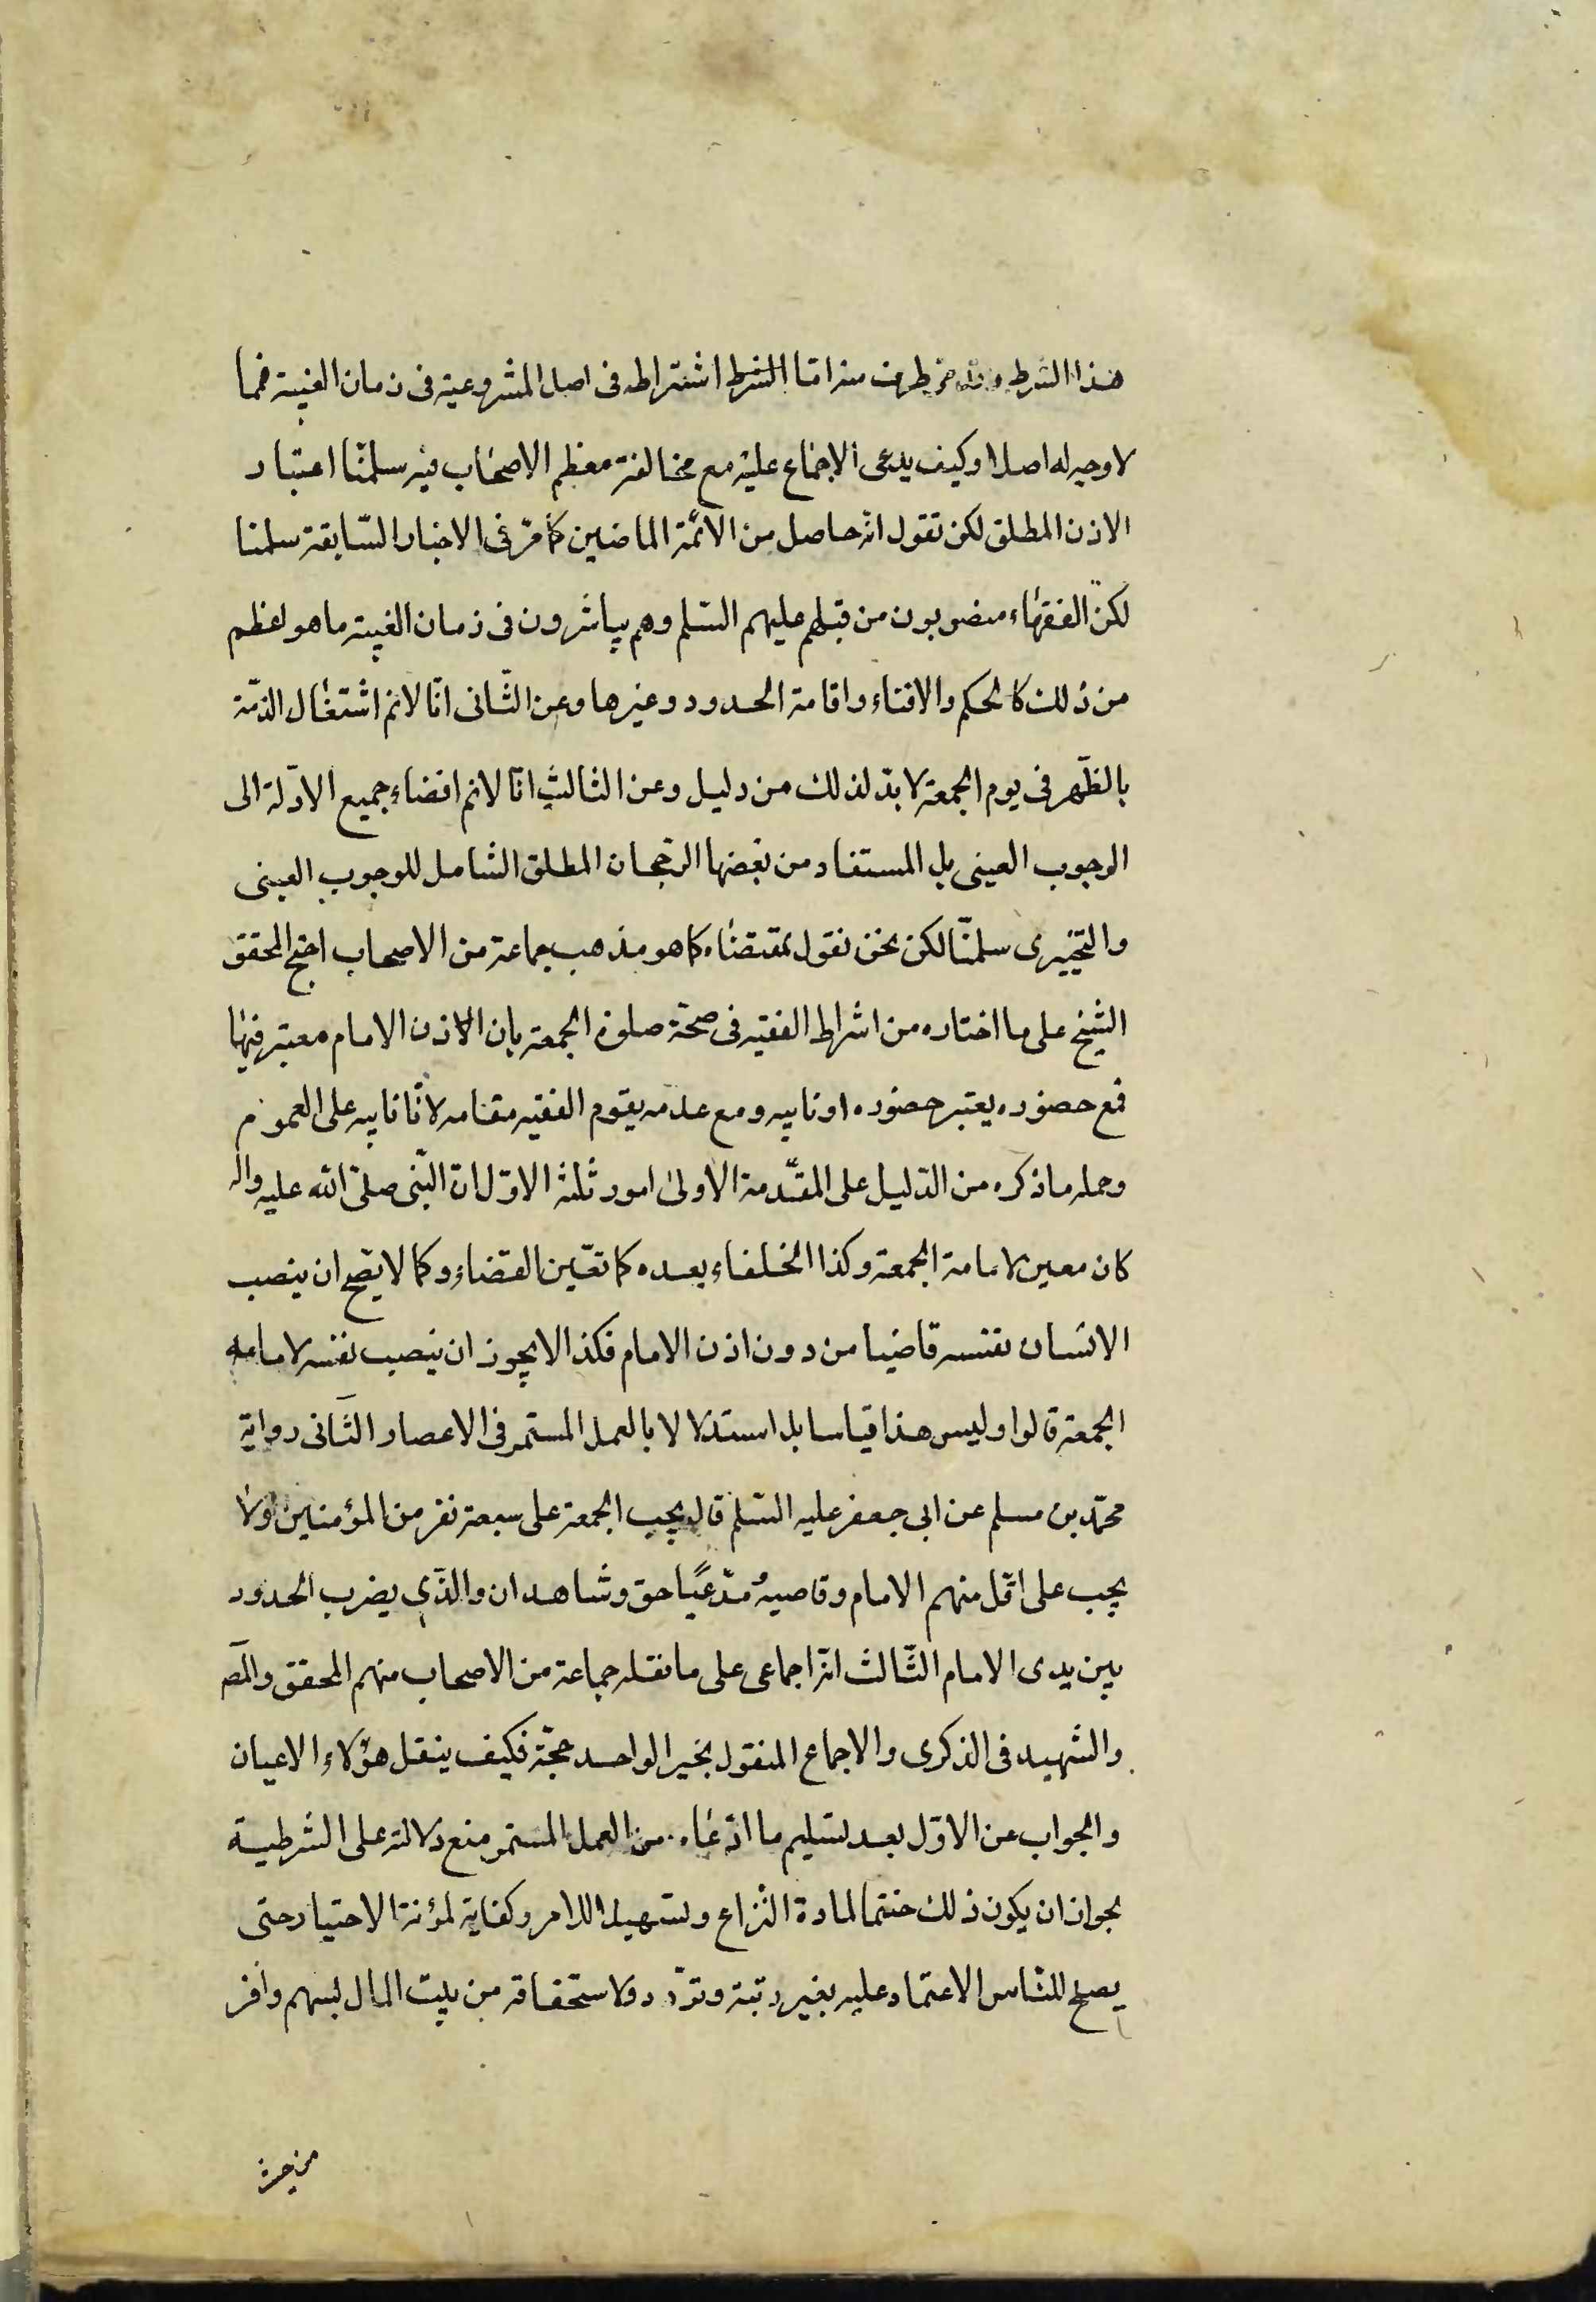 هذا الشرط وقد مر طرف منه اما الشرط اشتراطه فى اصل المشروعية فى زمان الغيبة فمما
لا وجه له اصلا وكيف يدعى الاجماع عليه مع مخالفة معظم الاصحاب فيه سلمنا اعتبار
الاذن المطلق لكن نقول انه حاصل من الائمة الماضين كما مر فى الاخبار السابقة سلمنا
لكن الفقهاء منصوبون من قبلهم عليهم السلم وهم يباشرون فى زمان الغيبة ما هو اعظم
من ذلك كالحكم والافتاء واقامة الحدود وغيرها وعن الثانى انا لا نم اشتغال الذمة
بالظهر فى يوم الجمعة لا بد لذلك من دليل وعن الثالث انا لا نم افضاء جميع الادلة الى
الوجوب العينى بل المستفاد من بعضها الرجحان المطلق الشامل للوجوب العينى
والتخييرى سلمنا لكن نحن نقول بمقتضاه كما هو مذهب جماعة من الاصحاب احتج المحقق
الشيخ على ما اختاره من اشراط الفقيه فى صحة صلوة الجمعة بان الاذن الامام معتبر فيها
فمع حضوره يعتبر حضوره او نايبه ومع عدمه يقوم الفقيه مقامه لانا نايبه على العموم
وجمله ما ذكره من الدليل على المقدمة الاولى امور ثلثة الاول ان النبى صلى الله عليه واله
كان معين لامامة الجمعة وكذا الخلفاء بعده كما تعين القضاء وكما لا يصح ان ينصب
الانسان نفسه قاضيا من دون اذن الامام فكذا لا يجوز ان ينصب نفسه لامامة
الجمعة قالوا وليس هذا قياسا بل استدلالا بالعمل المستمر فى الاعصار الثانى رواية
محمد بن مسلم عن ابى جعفر عليه السلم قال يجب الجمعة على سبعة نفر من المؤمنين ولا
يجب على اقل منهم الامام وقاضيه مدعيا حق وشاهدان والذى يضرب الحدود
بين يدى الامام الثالث انه اجماعى على ما نقله جماعة من الاصحاب منهم المحقق والمص
والشهيد فى الذكرى والاجماع المنقول بخبر الواحد حجة فكيف ينقل هؤلاء الاعيان
والجواب عن الاول بعد تسليم ما ادعاه من العمل المستمر منع دلالته على الشرطية
بجواز ان يكون ذلك حتما لمادة النزاع وتسهيلا للامر وكفاية لمؤنة الاختيار حتى
يصلح للناس الاعتماد عليه بغير رتبة وتردد ولاستحقاقه من بيت المال لسهم وافر
من حيث